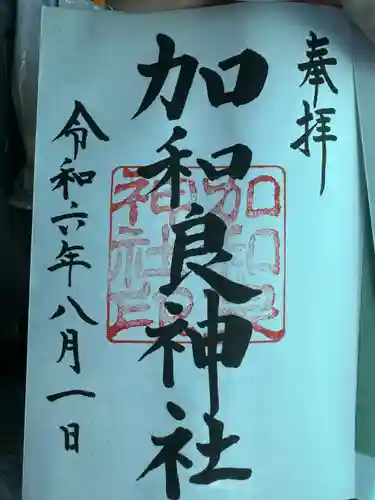 奉拝
加和良神社
加和良
神社印
令和六年八月一日